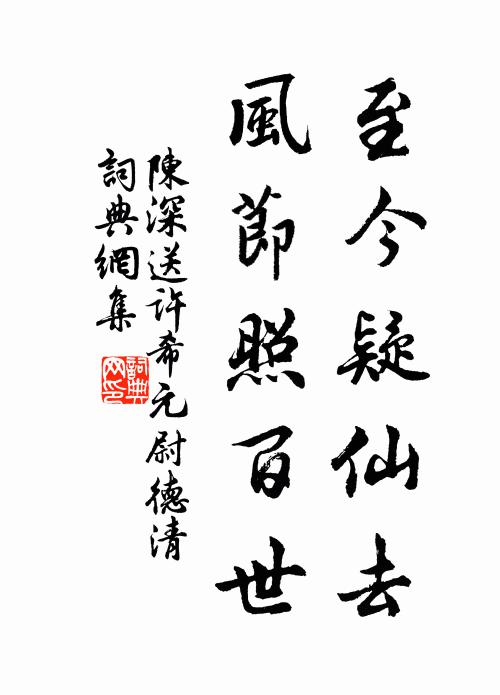 至今疑仙去
風節照百世
陳深送許希元尉德清
詞典網集
詞典网印